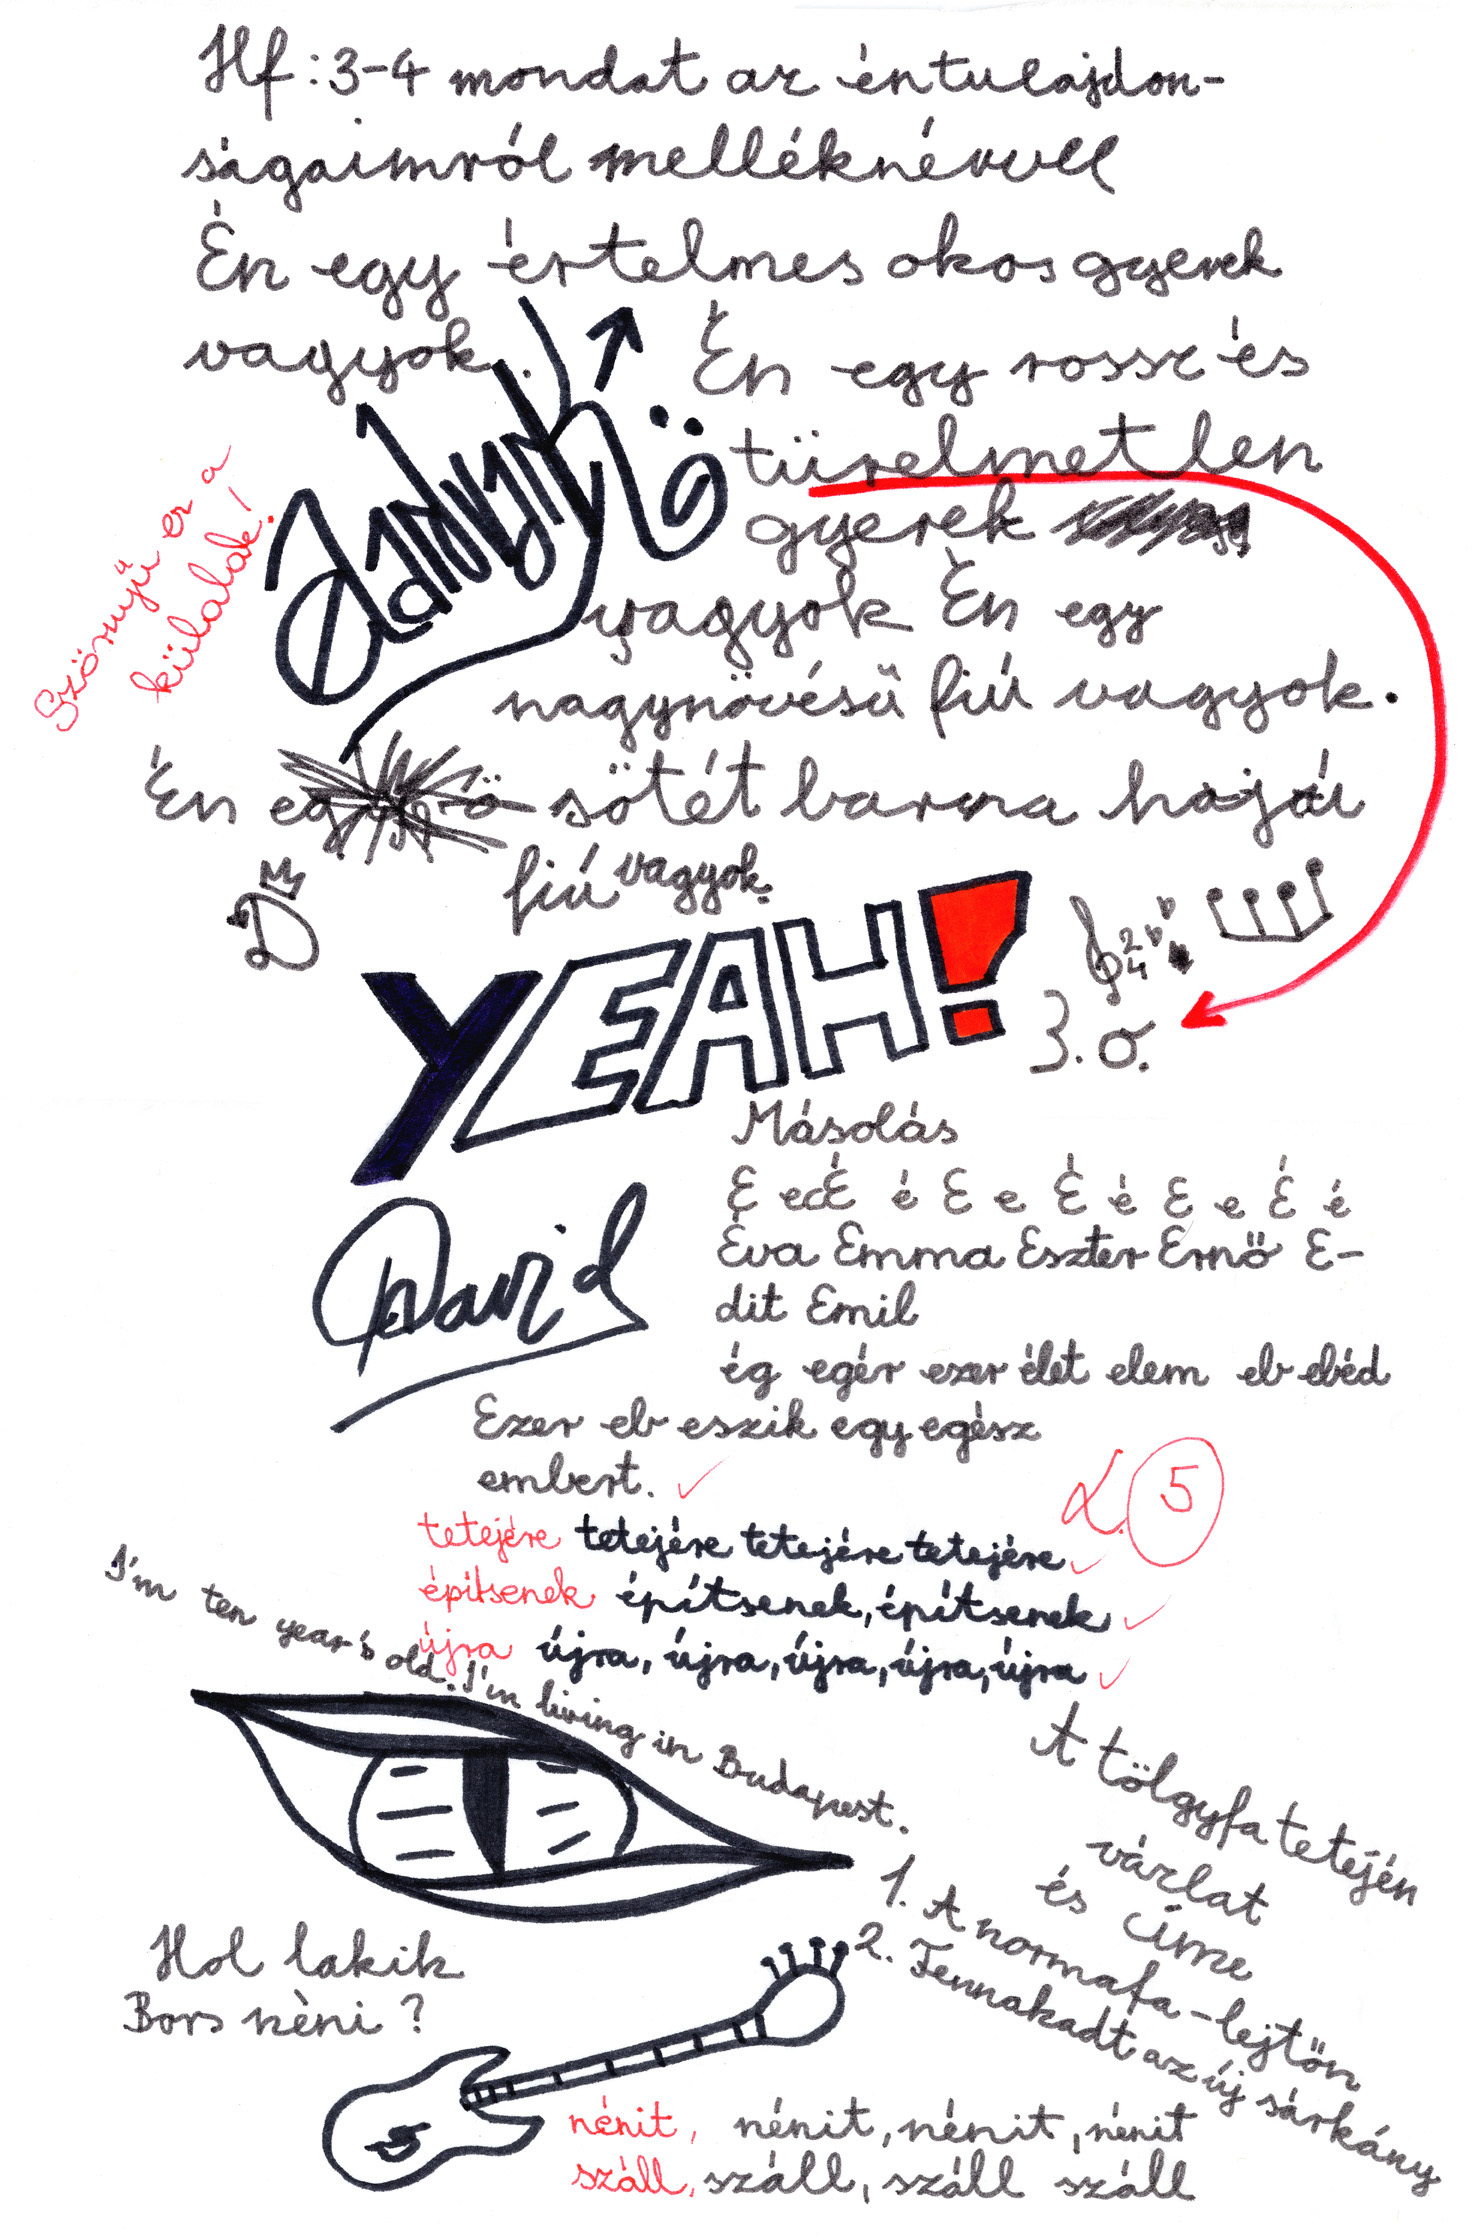 Hf: 3-4 mondat az éntulajdon-
ságaimról melléknévvel
Én egy értelmes okos gyerek
vagyok.
Én egy rossz és
türelmetlen
gyerek
vagyok Én egy
nagynövésű fiú vagyok.
Szörnyű ez a
külalak!
Én egy sötét barna hajú
fiú vagyok.
D
YEAH!
2
4
3. ó.
Másolás
E e É é E e É é E e É é
Éva Emma Eszter Ernő E-
dit Emil
David
ég egér ezer élet elem eb ebéd
Ezer eb eszik egy egész
embert.
5
tetejére tetejére tetejére tetejére
építsenek építsenek, építsenek
újra újra, újra, újra, újra, újra
I'm ten year's old. I'm living in Budapest.
A tölgyfa tetején
vázlat
és címe
1. A normafa-lejtőn
2. Fennakadt az új sárkány
Hol lakik
Bors néni?
nénit, nénit, nénit, nénit
száll, száll, száll száll